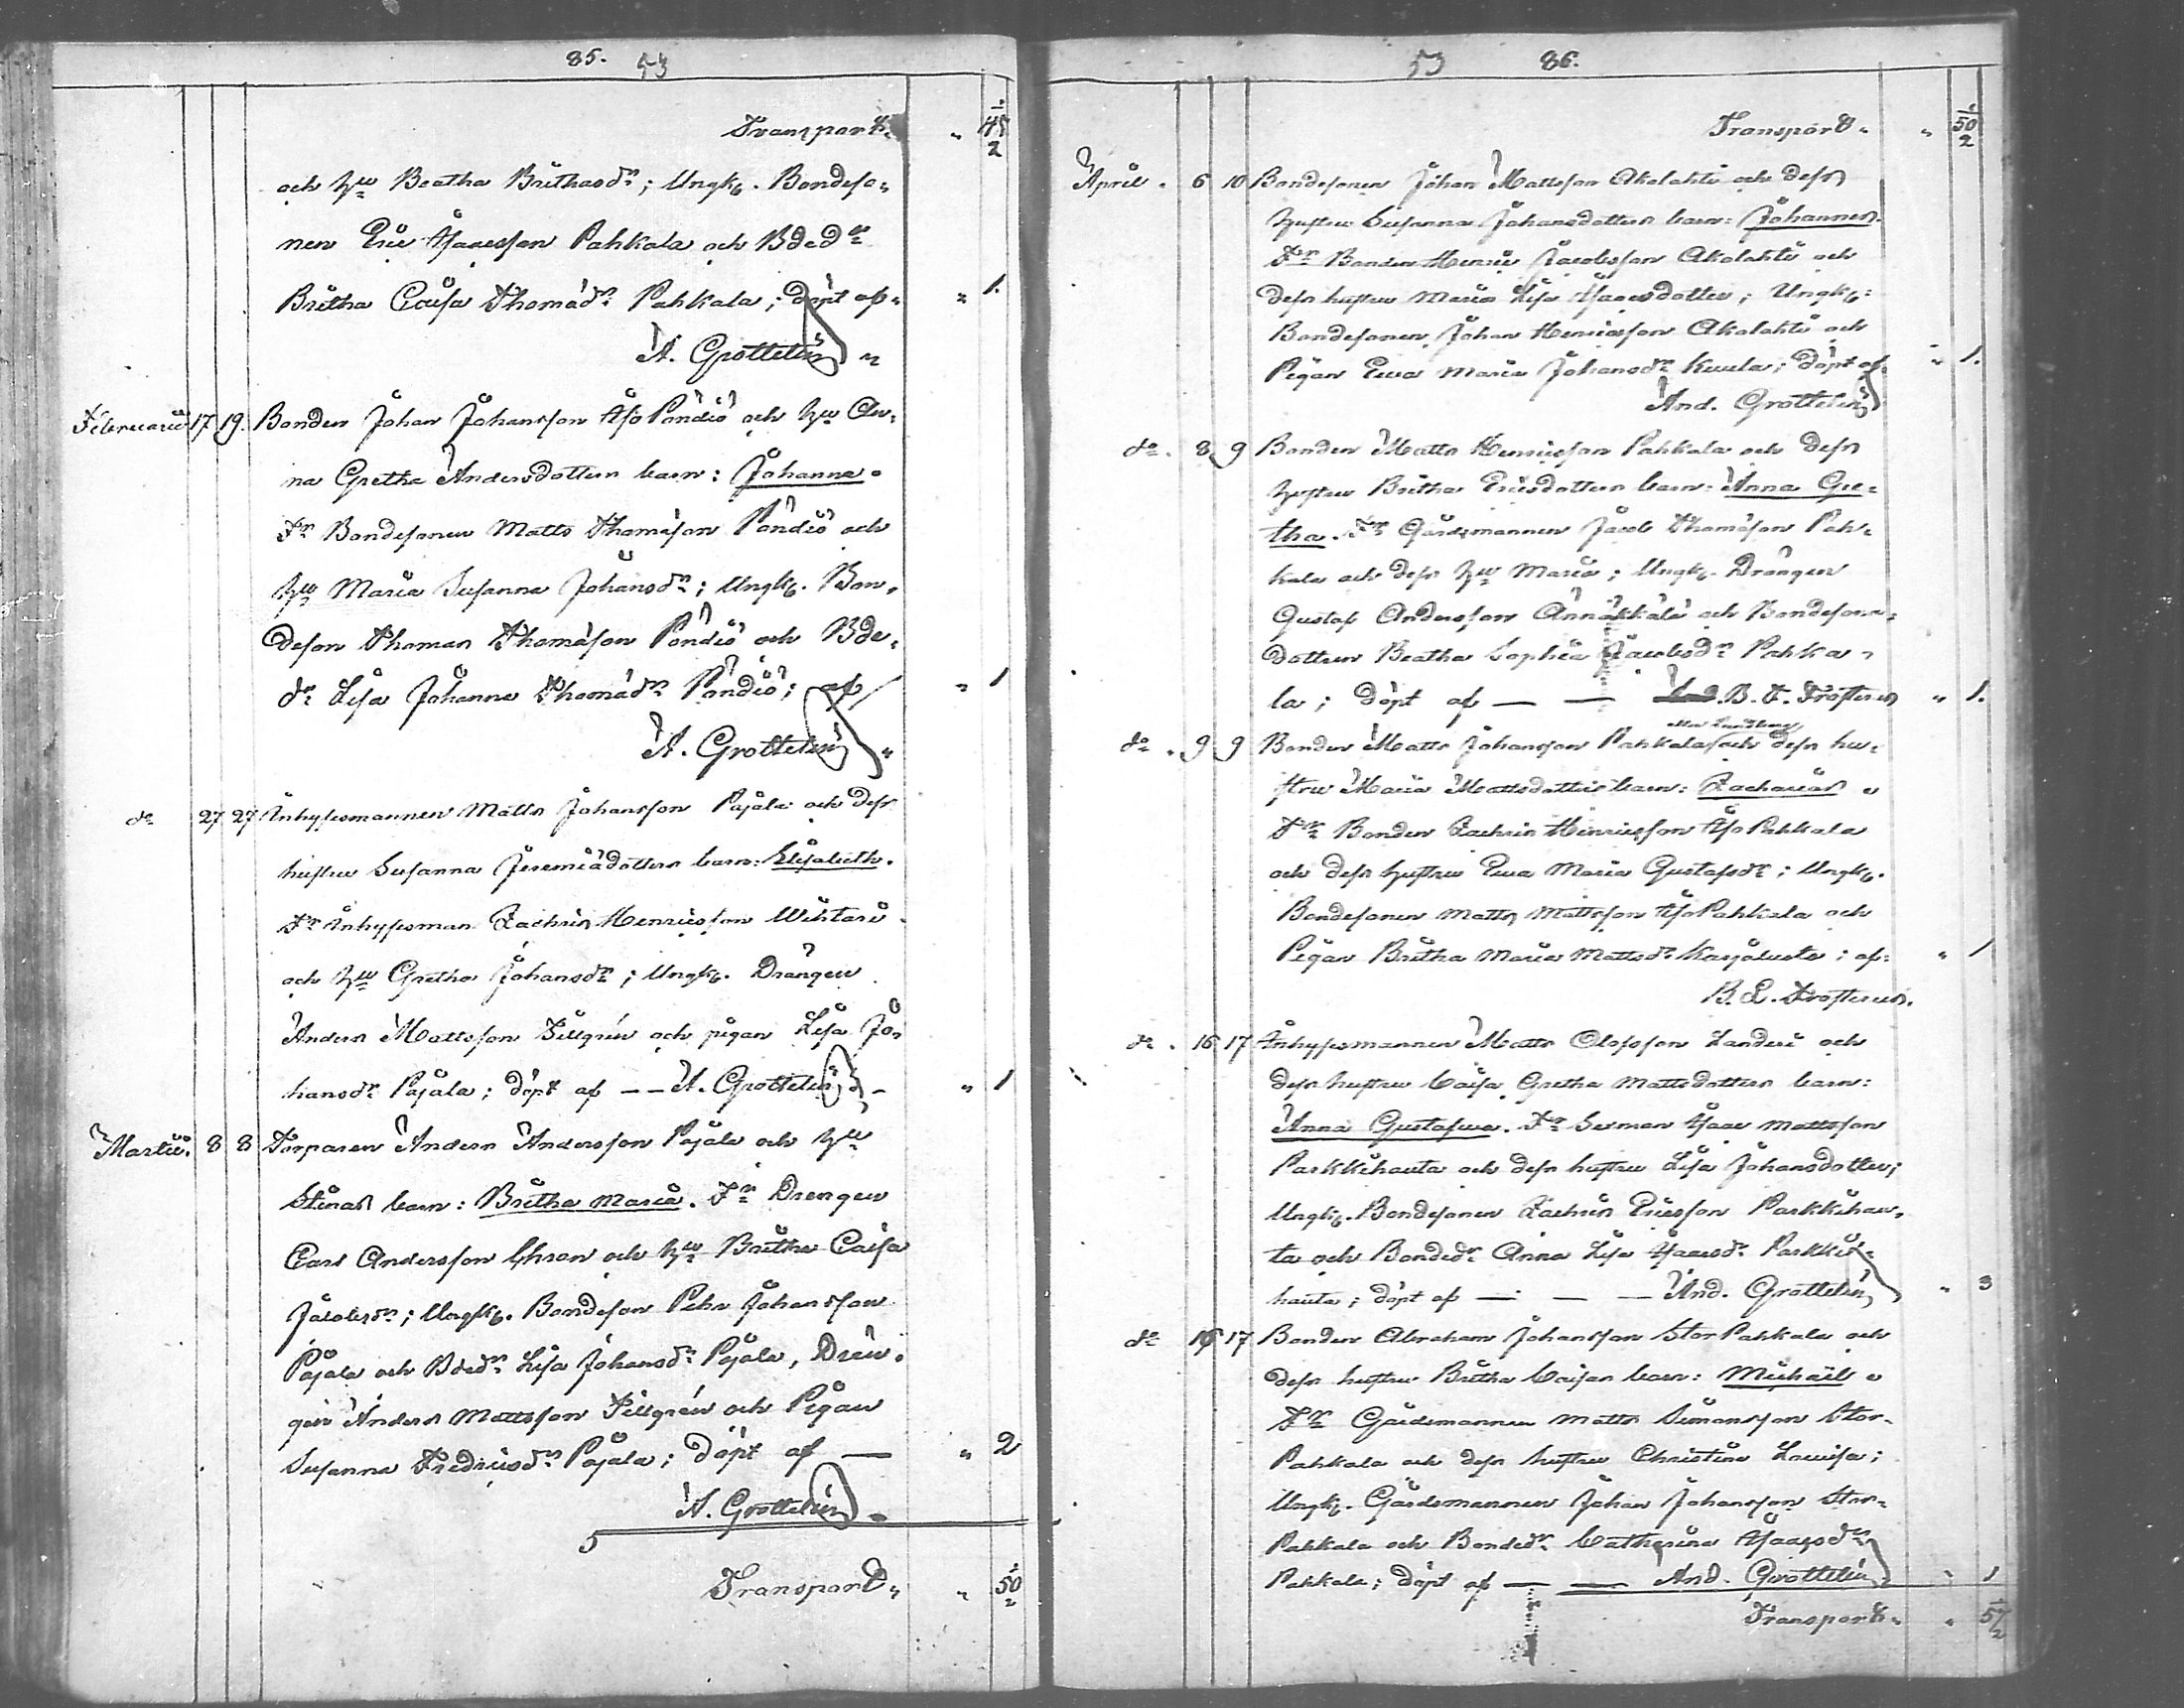 85. 53
Transport. " 45 2
och hu Beatha Brithasdr; Ungk. Bondeso-
nen Eric Isacsson Pahkala och Bdedr
Britha Caisa Thomädr Pahkala; döpt af " 1.
A. Grottelin "
Februarii 17 19. Bonden Johan Johansson Iso Pöndiö och hu An-
na Gretha Andersdotters barn: Johanna.
Fr Bondesonen Matts Thomasson Pöndiö och
hu Maria Susanna Johansdr; Ungk. Bon-
deson Thomas Thomason Pöndiö och Bde-
dr Lisa Johanna Thomädr Pöndiö; af " 1
A. Grottelin "
do 27 27 Inhysesmannen Matts Johansson Pajala och dess
hustru Susanna Jeremiädotters barn: Elisabeth.
Fr Inhysesman Zachris Henricsson Wihtari
och hu Gretha Johansdr; Ungk. Drängen
Anders Mattsson Tillgrén och pigan Lisa Jo-
hansdr Pajala; döpt af — — A. Grottelin " 1
Martii. 8 8 Torparen Anders Andersson Pajala och hu
Stinas barn: Britha Maria. Fr Drengen
Carl Andersson och hu Britha Caisa
Jacobsdr; Ungk. Bondeson Pehr Johansson
Pajala och Bdedr Lisa Johansdr Pajala, Drän-
gen Anders Mattsson Tillgrén och Pigan
Susanna Fredricsdr Pajala; döpt af — " 2
A. Grottelin
5
Transport " 50 2
53 86.
Transport " 50 2
April. 6 10 Bondesonen Johan Mattsson Akolahti och dess
hustru Susanna Johansdotters barn: Johannes.
Fr Bonden Henric Jacobsson Akolahti och
dess hustru Maria Lisa Isacsdotter; Ungk:
Bondesonen Johan Henricsson Akolahti och
Pigan Ewa Maria Johansdr Kuula; döpt af " 1.
And. Grottelin
do. 8 9 Bonden Matts Henricsson Pahkala och dess
hustru Britha Ericsdotters barn: Anna Gre-
tha. Fr Gårdsmannen Jacob Thomasson Pah-
kala och dess hu Maria; Ungk. Drängen
Gustaf Andersson Annäkkälä och Bondesone-
dottren Beatha Sophia Jacobsdr Pahka-
la; döpt af — — B. E. Frosterus " 1.
do. 9 9 Bonden Matts Johansson Pahkala eller Lundberg och dess hu-
stru Maria Mattsdotters barn: Zacharias
Fr Bonden Zachris Henricsson Iso Pahkala
och dess hustru Ewa Maria Gustafsdr; Ungk.
Bondesonen Matts Mattsson Iso Pahkala och
Pigan Britha Maria Mattsdr Karjaluoto; af " 1
B. E. Frosterus.
do. 16 17 Inhysesmannen Matts Olofsson Landeri och
dess hustru Caisa Gretha Mattsdotters barn:
Anna Gustafwa. Fr Sexman Isac Mattsson
Parkkihauta och dess hustru Lisa Johansdotter;
Ungk. Bondesonen Zachris Ericsson Parkkihau-
ta och Bondedr Anna Lisa Isacsdr Parkki-
hauta; döpt af — — — And. Grottelin " 3
do 16 17 Bonden Abraham Johansson Stor Pahkala och
dess hustru Britha Caisas barn: Michaël
Fr Gårdsmannen Matts Simonsson Stor-
Pahkala och dess hustru Christina Lowisa;
Ungk. Gårdsmannen Johan Johansson Stor-
Pahkala och Bondedr Catharina Isacsdr
Pahkala; döpt af — — And. Grottelin " 1
Transport " 57 2